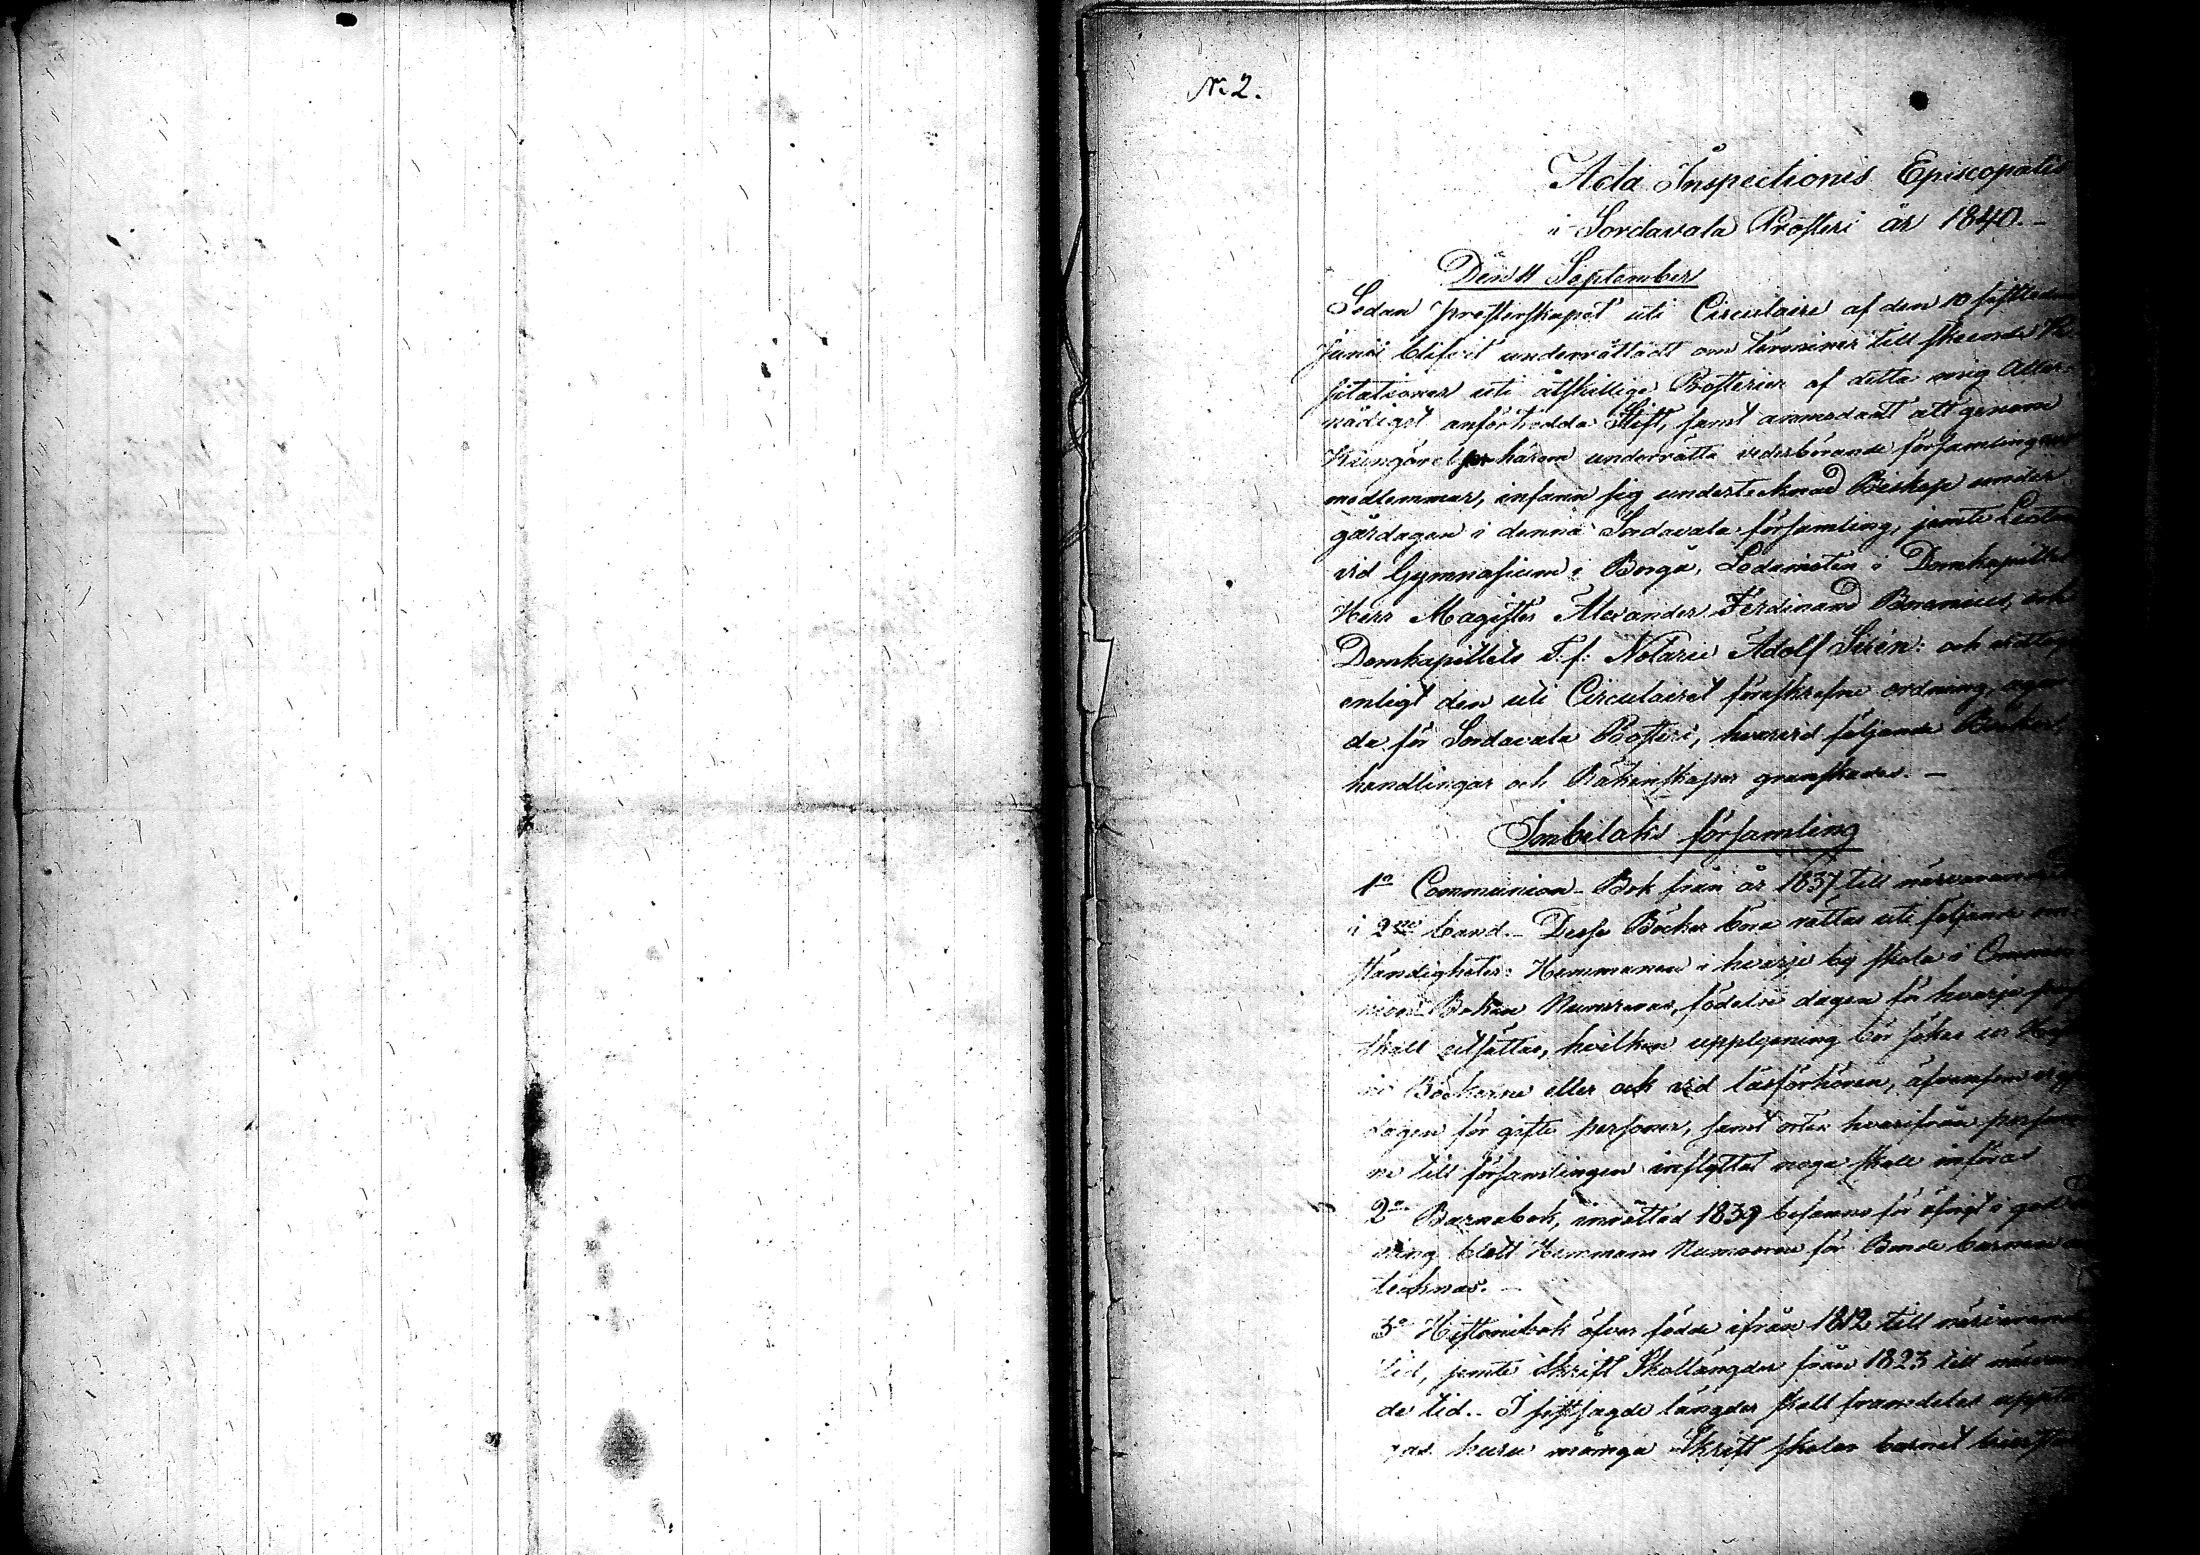 No 2.
Acta Inspectionis Episcopalis
i Sordavala Prosteri år 1840.-
Den 11 September
Sedan presterskapet uti Circulaire af den 10 sistledne
Junii blifvit underrättadt om terminer till skeende Vi-
sitationer uti åtskillige Prosterier af detta mig Aller-
nådigst anförtrodda Stift, samt anmodadt att genom
Kungörelser härom underrätta vederbörande församlingars
medlemmar, infann sig undertecknad Biskop under
gårdagen i denna Sordavala församling, jemte Lector
vid Gymnasium i Borgå, Ledamoten i Domkapitlet
Herr Magister Alexander Ferdinand Borenius, och
Domkapitlets T. f. Notarie Adolf Sirén: och
enligt den uti Circulairet föreskrefne ordning,
da för Sordavala Prosteri, hvarvid följande Böcker
handlingar och Räkenskaper granskades. -
Imbilaks församling
1o Communion-Bok från år 1837 till närvarande
i 2ne band.- Desse Böcker böra rättas uti följande om-
ständigheter: Hemmanen i hvarje by skola i Commu-
nion-Boken Numreras, födelse dagen för hvarje
skall utsättas, hvilken upplysning bör sökas ur
Böckerne eller ock vid läsförhören, äfvensom
dagen för gifte personer, samt orten hvarifrån
ne till församlingen inflyttat noga skall införas
2o Barnabok, inrättad 1839 befanns för öfrigt i god
ning blott Hemmans Numrorna för Bonde barnen
tecknas. -
3o Historiebok öfver födde ifrån 1812 till närvarande
tid, jemte Skrift Skollängder från 1823 till närvaran
de tid.- I sistsagde längder skall framdeles uppta
gas huru många Skrift skolor barnet